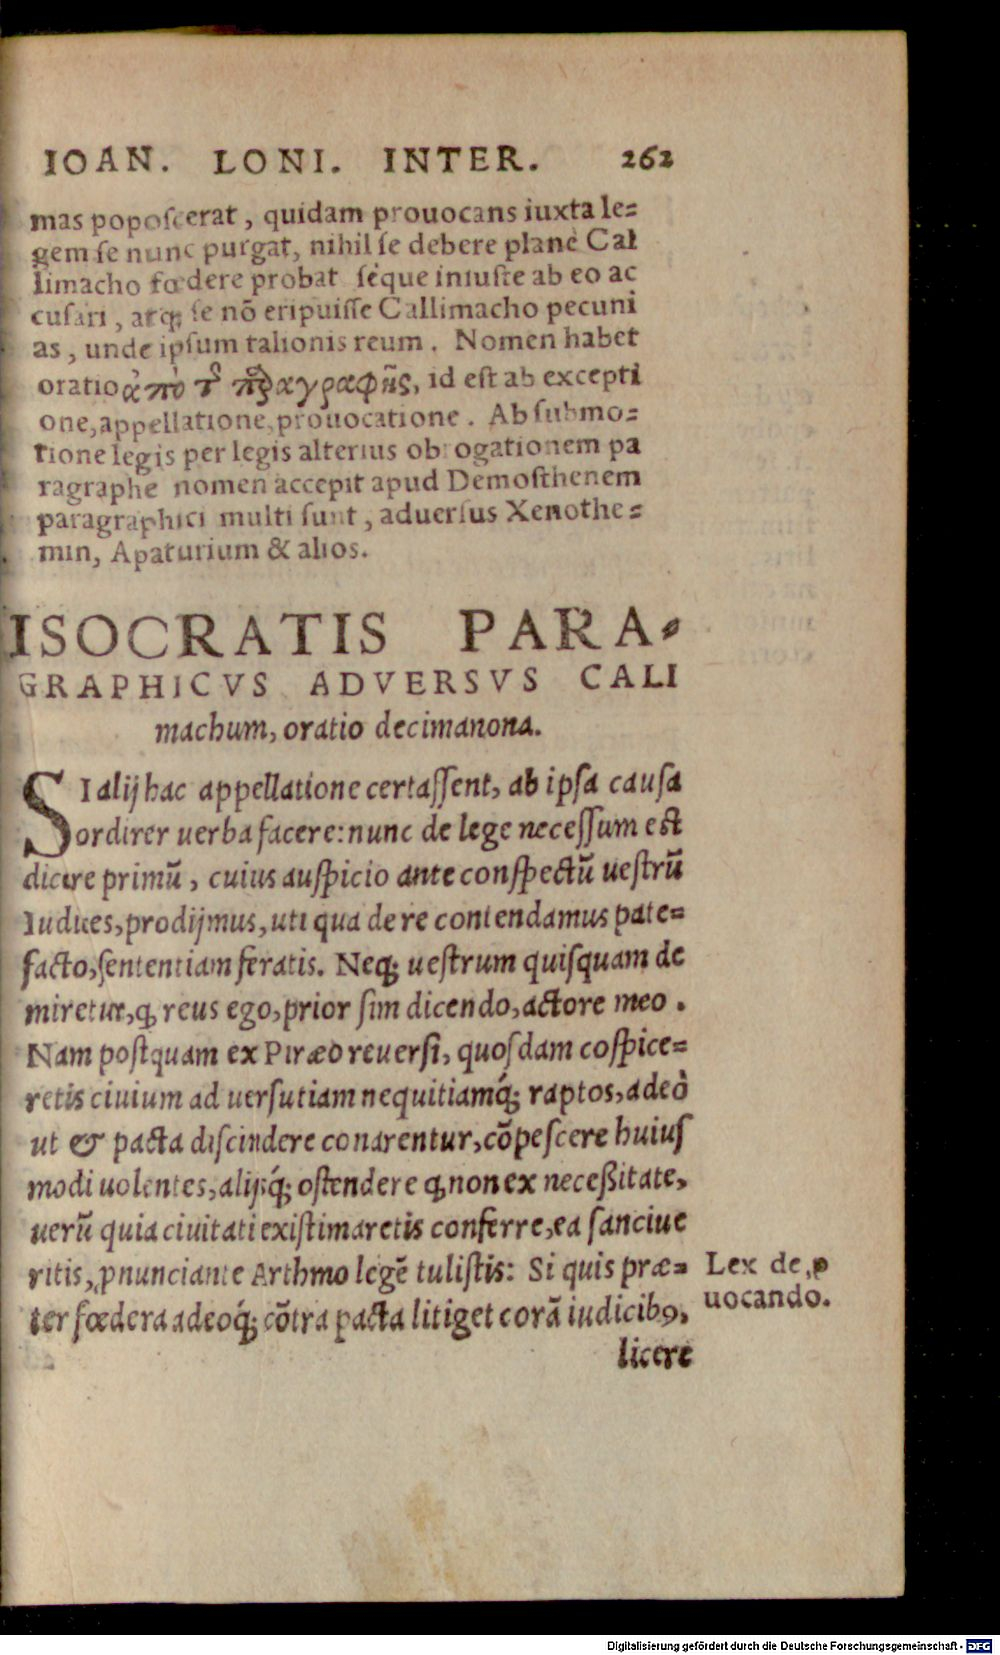 IOAN. LONI. INTER. 262
mas poposcerat, quidam prouocans iuxta le=
gem se nunc purgat, nihil se debere planè Cal
limacho fœdere probat séque iniuste ab eo ac
cusari, atq; se nõ eripuisse Callimacho pecuni
as, unde ipsum talionis reum. Nomen habet
oratio ἀπὸ τ῀ παραγραφῆς, id est ab excepti
one, appellatione, prouocatione. Ab submo=
tione legis per legis alterius obrogationem pa
ragraphe nomen accepit apud Demosthenem
paragraphici multi sunt, aduersus Xenothe=
min, Apaturium & alios.
ISOCRATIS PARA-
GRAPHICVS ADVERSVS CALI
machum, oratio decimanona.
SI alij hac appellatione certassent, ab ipsa causa
ordirer uerba facere: nunc de lege necessum est
dicere primũ, cuius auspicio ante conspectũ uestrũ
Iudices, prodijmus, uti qua de re contendamus pate=
facto, sententiam feratis. Neq; uestrum quisquam de
miretur, ꝙ reus ego, prior sim dicendo, actore meo.
Nam postquam ex Piræo reuersi, quosdam cõspice=
retis ciuium ad uersutiam nequitiamq́; raptos, adeò
ut & pacta discindere conarentur, cõpescere huius
modi uolentes, alijsq́; ostendere ꝙ non ex necessitate,
uerũ quia ciuitati existimaretis conferre, ea sanciue
ritis, ꝓnunciante Arthmo legẽ tulistis: Si quis præ=
ter fœdera adeoq́; cõtra pacta litiget corã iudicibꝰ,
licere
Lex de ꝓ
uocando.
Digitalisierung gefördert durch die Deutsche Forschungsgemeinschaft - DFG